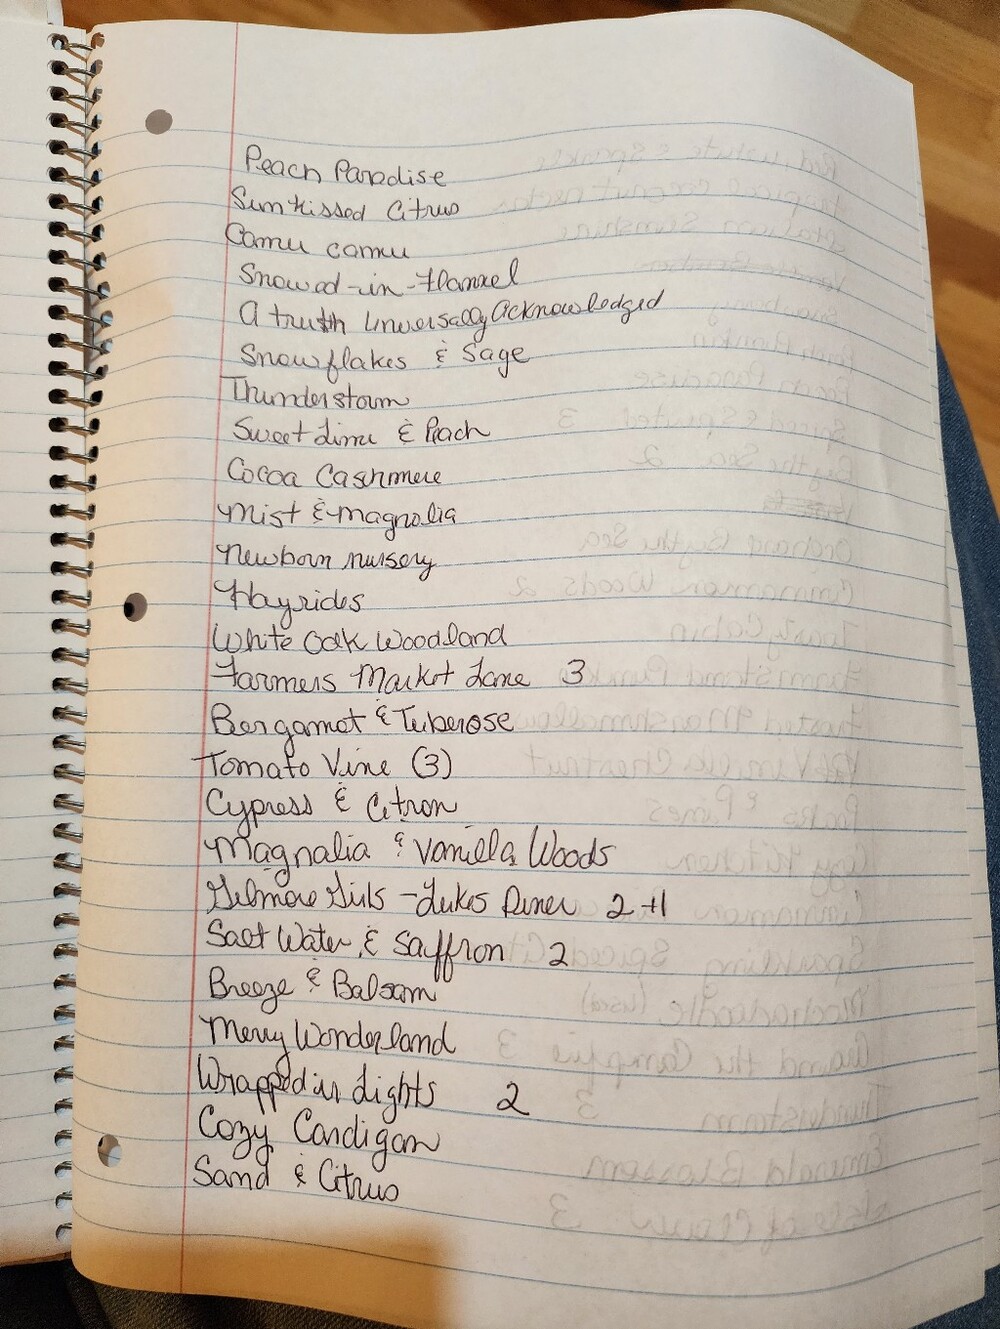 Peach Paradise
Sun Kissed Citrus
Camu camu
Snowed-in-Flannel
A truth Universally Acknowledged
Snowflakes & Sage
Thunderstorm
Sweet Lime & Peach
Cocoa Cashmere
Mist & Magnolia
Newborn nursery
Hayrides
White Oak Woodland
Farmers Market Lane 3
Bergamot & Tuberose
Tomato Vine (3)
Cypress & Citron
Magnolia & Vanilla Woods
Gilmore Girls - Lukes Diner 2 +1
Salt Water & Saffron 2
Breeze & Balsam
Merry Wonderland
Wrapped in Lights 2
Cozy Cardigan
Sand & Citrus